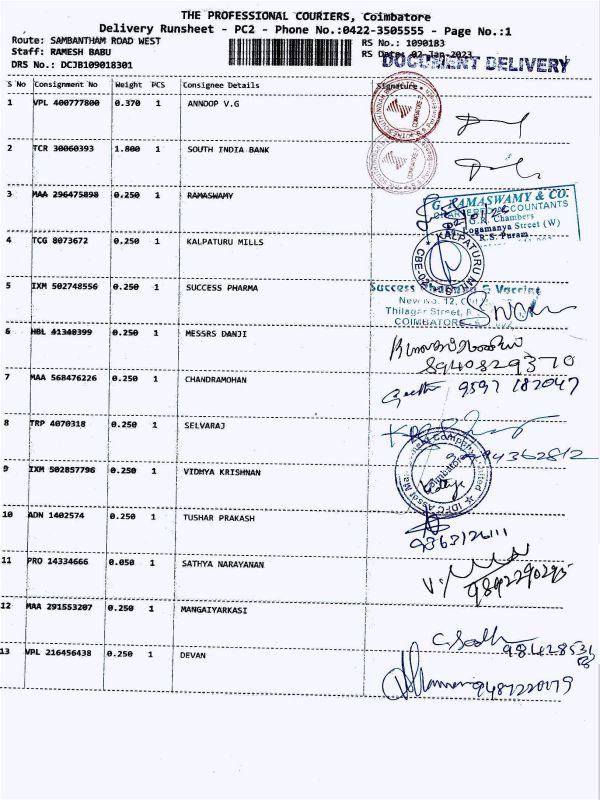 THE PROFESSIONAL COURIERS, Coimbatore
Delivery Runsheet - PC2 - Phone No.:0422-3505555 - Page No.:1
Route: SAMBANTHAM ROAD WEST
RS No.: 1090183
Staff: RAMESH BABU
RS Date: 02-Jan-2023
DRS No.: DCJB109018301
DOCUMENT DELIVERY
S No Consignment No Weight PCS Consignee Details Signature
1 VPL 400777800 0.370 1 ANNOOP V.G
2 TCR 30060393 1.800 1 SOUTH INDIA BANK
3 MAA 296475898 0.250 1 RAMASWAMY
G. RAMASWAMY & CO.
CHARTERED ACCOUNTANTS
G.R. Chambers
Logamanya Street (W)
R.S. Puram
4 TCG 8073672 0.250 1 KALPATURU MILLS
KALPATURU
5 IXM 502748556 0.250 1 SUCCESS PHARMA
Success
New No. 12,
Thilagar Street,
COIMBATORE
6 HBL 41340399 0.250 1 MESSRS DANJI
8940829370
7 MAA 568476226 0.250 1 CHANDRAMOHAN
Geetha 9597 187047
8 TRP 4070318 0.250 1 SELVARAJ
9 IXM 502857796 0.250 1 VIDHYA KRISHNAN
10 ADN 1402574 0.250 1 TUSHAR PRAKASH
11 PRO 14334666 0.050 1 SATHYA NARAYANAN
9842290295
12 MAA 291553207 0.250 1 MANGAIYARKASI
13 VPL 216456438 0.250 1 DEVAN
9487220179